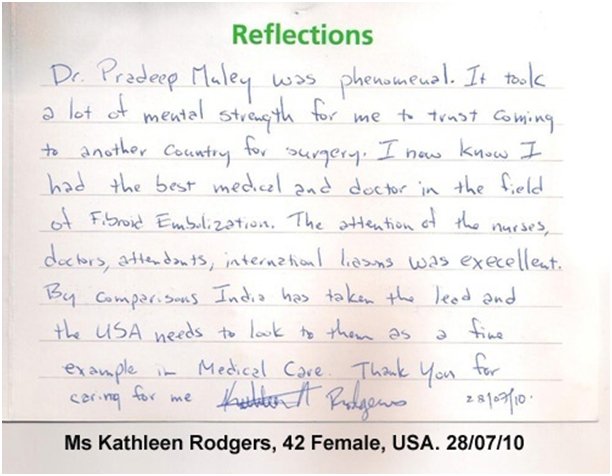 Reflections
Dr. Pradeep Muley was phenomenal. It took
a lot of mental strength for me to trust coming
to another country for surgery. I now know I
had the best medical and doctor in the field
of Fibroid Embolization. The attention of the nurses,
doctors, attendants, international liasons was execellent.
By comparisons India has taken the lead and
the USA needs to look to them as a fine
example in Medical Care. Thank You for
caring for me Kathleen Rodgers 28/07/10.
Ms Kathleen Rodgers, 42 Female, USA. 28/07/10